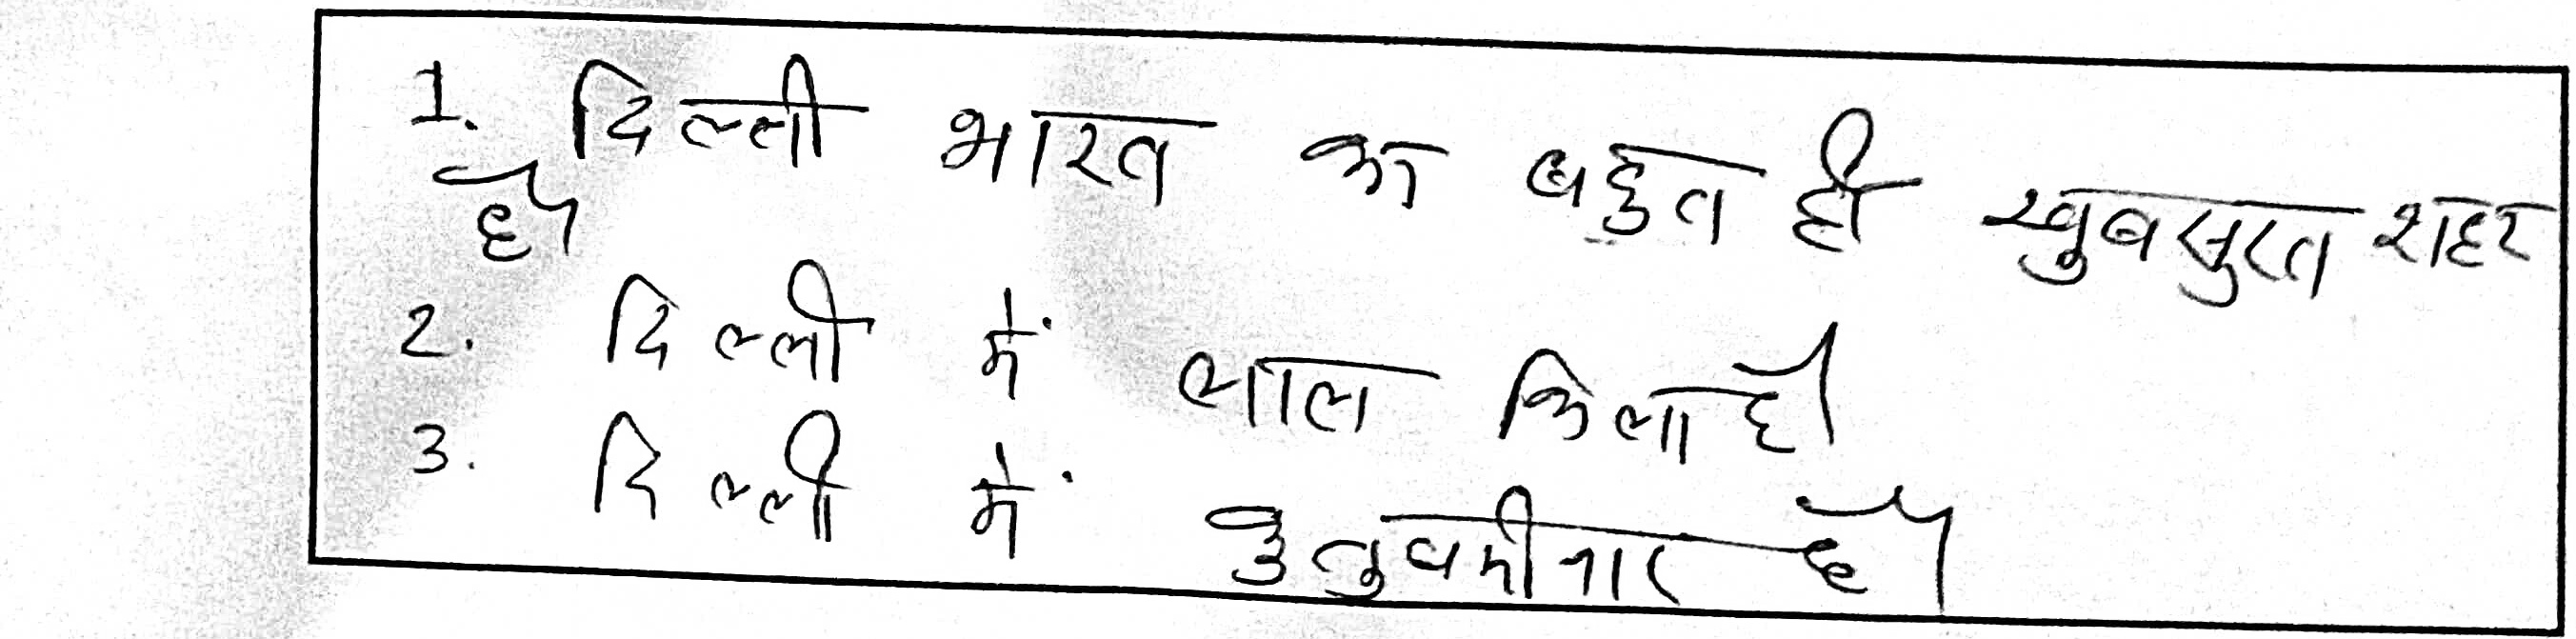 1. दिल्ली भारत का बहुत ही खुबसुरत शहर
है।
2. दिल्ली में लाल किला है।
3. दिल्ली में कुतुबमीनार है।